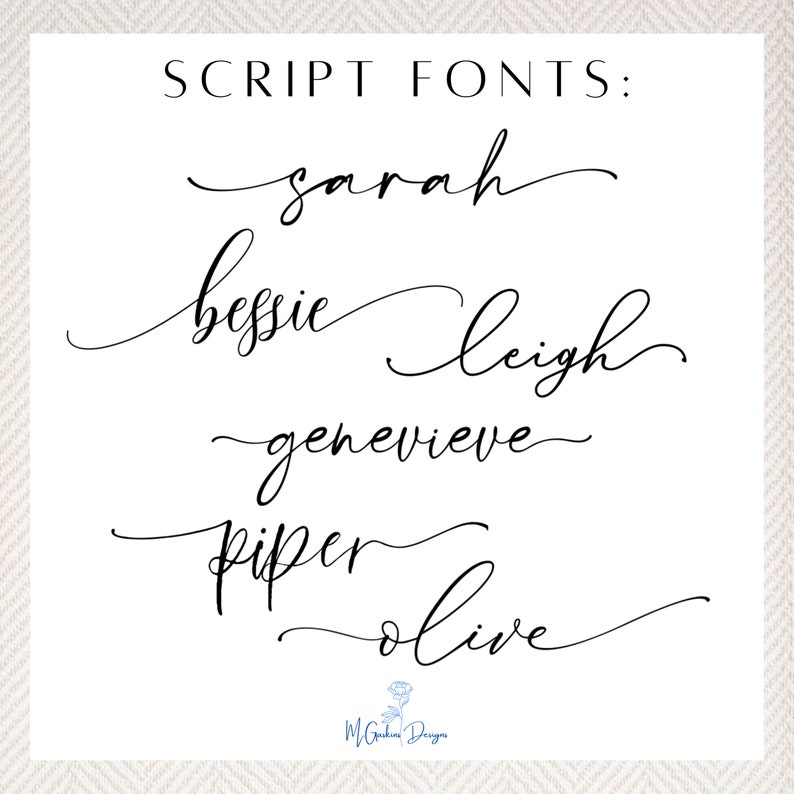 SCRIPT FONTS:
sarah
bessie
leigh
genevieve
piper
olive
MGaskins Designs